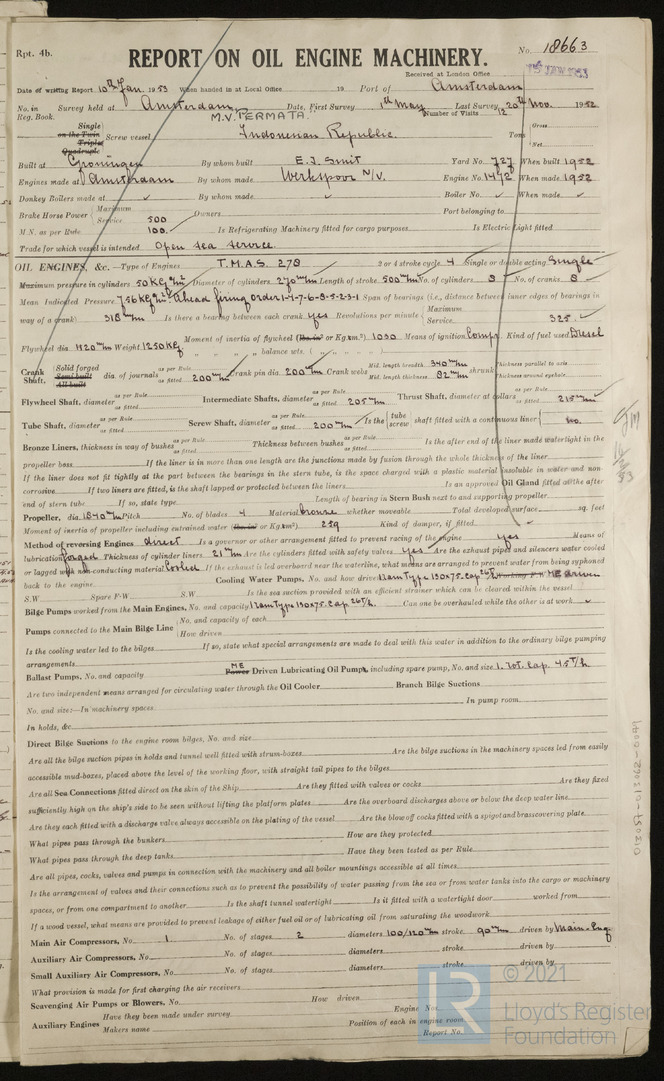 Rpt. 4b.
No. 18663
REPORT ON OIL ENGINE MACHINERY.
Received at London Office
Date of writing Report 10th Jan. 1953 When handed in at Local Office 19 Port of Amsterdam
No. in Reg. Book. Survey held at Amsterdam Date, First Survey 1th May Last Survey 20th Nov. 1952
Number of Visits 12
M.V. PERMATA
Single on the Twin Triple Quadruple Screw vessel Indonesian Republic. Tons Gross Net
Built at Groningen By whom built E.J. Smit Yard No. 727 When built 1952
Engines made at Amsterdam By whom made Werkspoor N/V. Engine No. 1472 When made 1952
Donkey Boilers made at By whom made Boiler No. When made
Brake Horse Power Maximum Service 500 Owners Port belonging to
M.N. as per Rule 100. Is Refrigerating Machinery fitted for cargo purposes Is Electric Light fitted
Trade for which vessel is intended Open sea service
OIL ENGINES, &c.—Type of Engines T.M.A.S. 278 2 or 4 stroke cycle 4 Single or double acting Single
Maximum pressure in cylinders 50 KG/cm² Diameter of cylinders 270 mm Length of stroke 500 mm No. of cylinders 8 No. of cranks 8
Mean Indicated Pressure 7,56 KG/cm² Ahead firing order 1-4-7-6-8-5-2-3-1 Span of bearings (i.e., distance between inner edges of bearings in
way of a crank) 318 mm Is there a bearing between each crank yes Revolutions per minute Maximum Service 325
Flywheel dia. 1420 mm Weight 1250 KG Moment of inertia of flywheel (lbs. in² or Kg.cm.²) 1030 Means of ignition Compr. Kind of fuel used Diesel
" " " balance wts. ( " " " )
Crank Shaft, Solid forged Semi built All built dia. of journals as per Rule as fitted 200 mm Crank pin dia. 200 mm Crank webs Mid. length breadth 340 mm Mid. length thickness 82 mm shrunk Thickness parallel to axis Thickness around eyehole
Flywheel Shaft, diameter as per Rule as fitted Intermediate Shafts, diameter as per Rule as fitted 205 mm Thrust Shaft, diameter at collars as per Rule as fitted 215 mm
Tube Shaft, diameter as per Rule as fitted Screw Shaft, diameter as per Rule as fitted 200 mm Is the tube screw shaft fitted with a continuous liner no.
Bronze Liners, thickness in way of bushes as per Rule as fitted Thickness between bushes as per Rule as fitted Is the after end of the liner made watertight in the
propeller boss If the liner is in more than one length are the junctions made by fusion through the whole thickness of the liner
If the liner does not fit tightly at the part between the bearings in the stern tube, is the space charged with a plastic material insoluble in water and non-
corrosive If two liners are fitted, is the shaft lapped or protected between the liners Is an approved Oil Gland fitted at the after
end of stern tube If so, state type Length of bearing in Stern Bush next to and supporting propeller
Propeller, dia. 1840 mm Pitch No. of blades 4 Material bronze whether moveable Total developed surface sq. feet
Moment of inertia of propeller including entrained water (lbs. in² or Kg.cm².) 259 Kind of damper, if fitted
Method of reversing Engines direct Is a governor or other arrangement fitted to prevent racing of the engine yes Means of
lubrication forced Thickness of cylinder liners 21 mm Are the cylinders fitted with safety valves yes Are the exhaust pipes and silencers water cooled
or lagged with non-conducting material Cooled If the exhaust is led overboard near the waterline, what means are arranged to prevent water from being syphoned
back to the engine Cooling Water Pumps, No. and how driven 1 ram type 130x75. Cap. 26 T/h ME driven
S.W. Spare F.W. S.W. Is the sea suction provided with an efficient strainer which can be cleared within the vessel
Bilge Pumps worked from the Main Engines, No. and capacity 1 ram type 130x75. Cap. 26 T/h. Can one be overhauled while the other is at work
Pumps connected to the Main Bilge Line No. and capacity of each
How driven
Is the cooling water led to the bilges If so, state what special arrangements are made to deal with this water in addition to the ordinary bilge pumping
arrangements
Ballast Pumps, No. and capacity ME Power Driven Lubricating Oil Pumps, including spare pump, No. and size 1. rot. Cap. 4.5 T/h
Are two independent means arranged for circulating water through the Oil Cooler Branch Bilge Suctions
No. and size:—In machinery spaces In pump room
In holds, &c.
Direct Bilge Suctions to the engine room bilges, No. and size
Are all the bilge suction pipes in holds and tunnel well fitted with strum-boxes Are the bilge suctions in the machinery spaces led from easily
accessible mud-boxes, placed above the level of the working floor, with straight tail pipes to the bilges
Are all Sea Connections fitted direct on the skin of the Ship Are they fitted with valves or cocks Are they fixed
sufficiently high on the ship's side to be seen without lifting the platform plates Are the overboard discharges above or below the deep water line
Are they each fitted with a discharge valve always accessible on the plating of the vessel Are the blow off cocks fitted with a spigot and brass covering plate
What pipes pass through the bunkers How are they protected
What pipes pass through the deep tanks Have they been tested as per Rule
Are all pipes, cocks, valves and pumps in connection with the machinery and all boiler mountings accessible at all times
Is the arrangement of valves and their connections such as to prevent the possibility of water passing from the sea or from water tanks into the cargo or machinery
spaces, or from one compartment to another Is the shaft tunnel watertight Is it fitted with a watertight door worked from
If a wood vessel, what means are provided to prevent leakage of either fuel oil or of lubricating oil from saturating the woodwork
Main Air Compressors, No. 1 No. of stages 2 diameters 100/120 mm stroke 90 mm driven by Main-Eng
Auxiliary Air Compressors, No. No. of stages diameters stroke driven by
Small Auxiliary Air Compressors, No. No. of stages diameters stroke driven by
What provision is made for first charging the air receivers
Scavenging Air Pumps or Blowers, No. How driven
Auxiliary Engines Have they been made under survey Engine Nos.
Makers name Position of each in engine room
Report No.
012057-013062-0044
© 2021
Lloyd's Register
Foundation